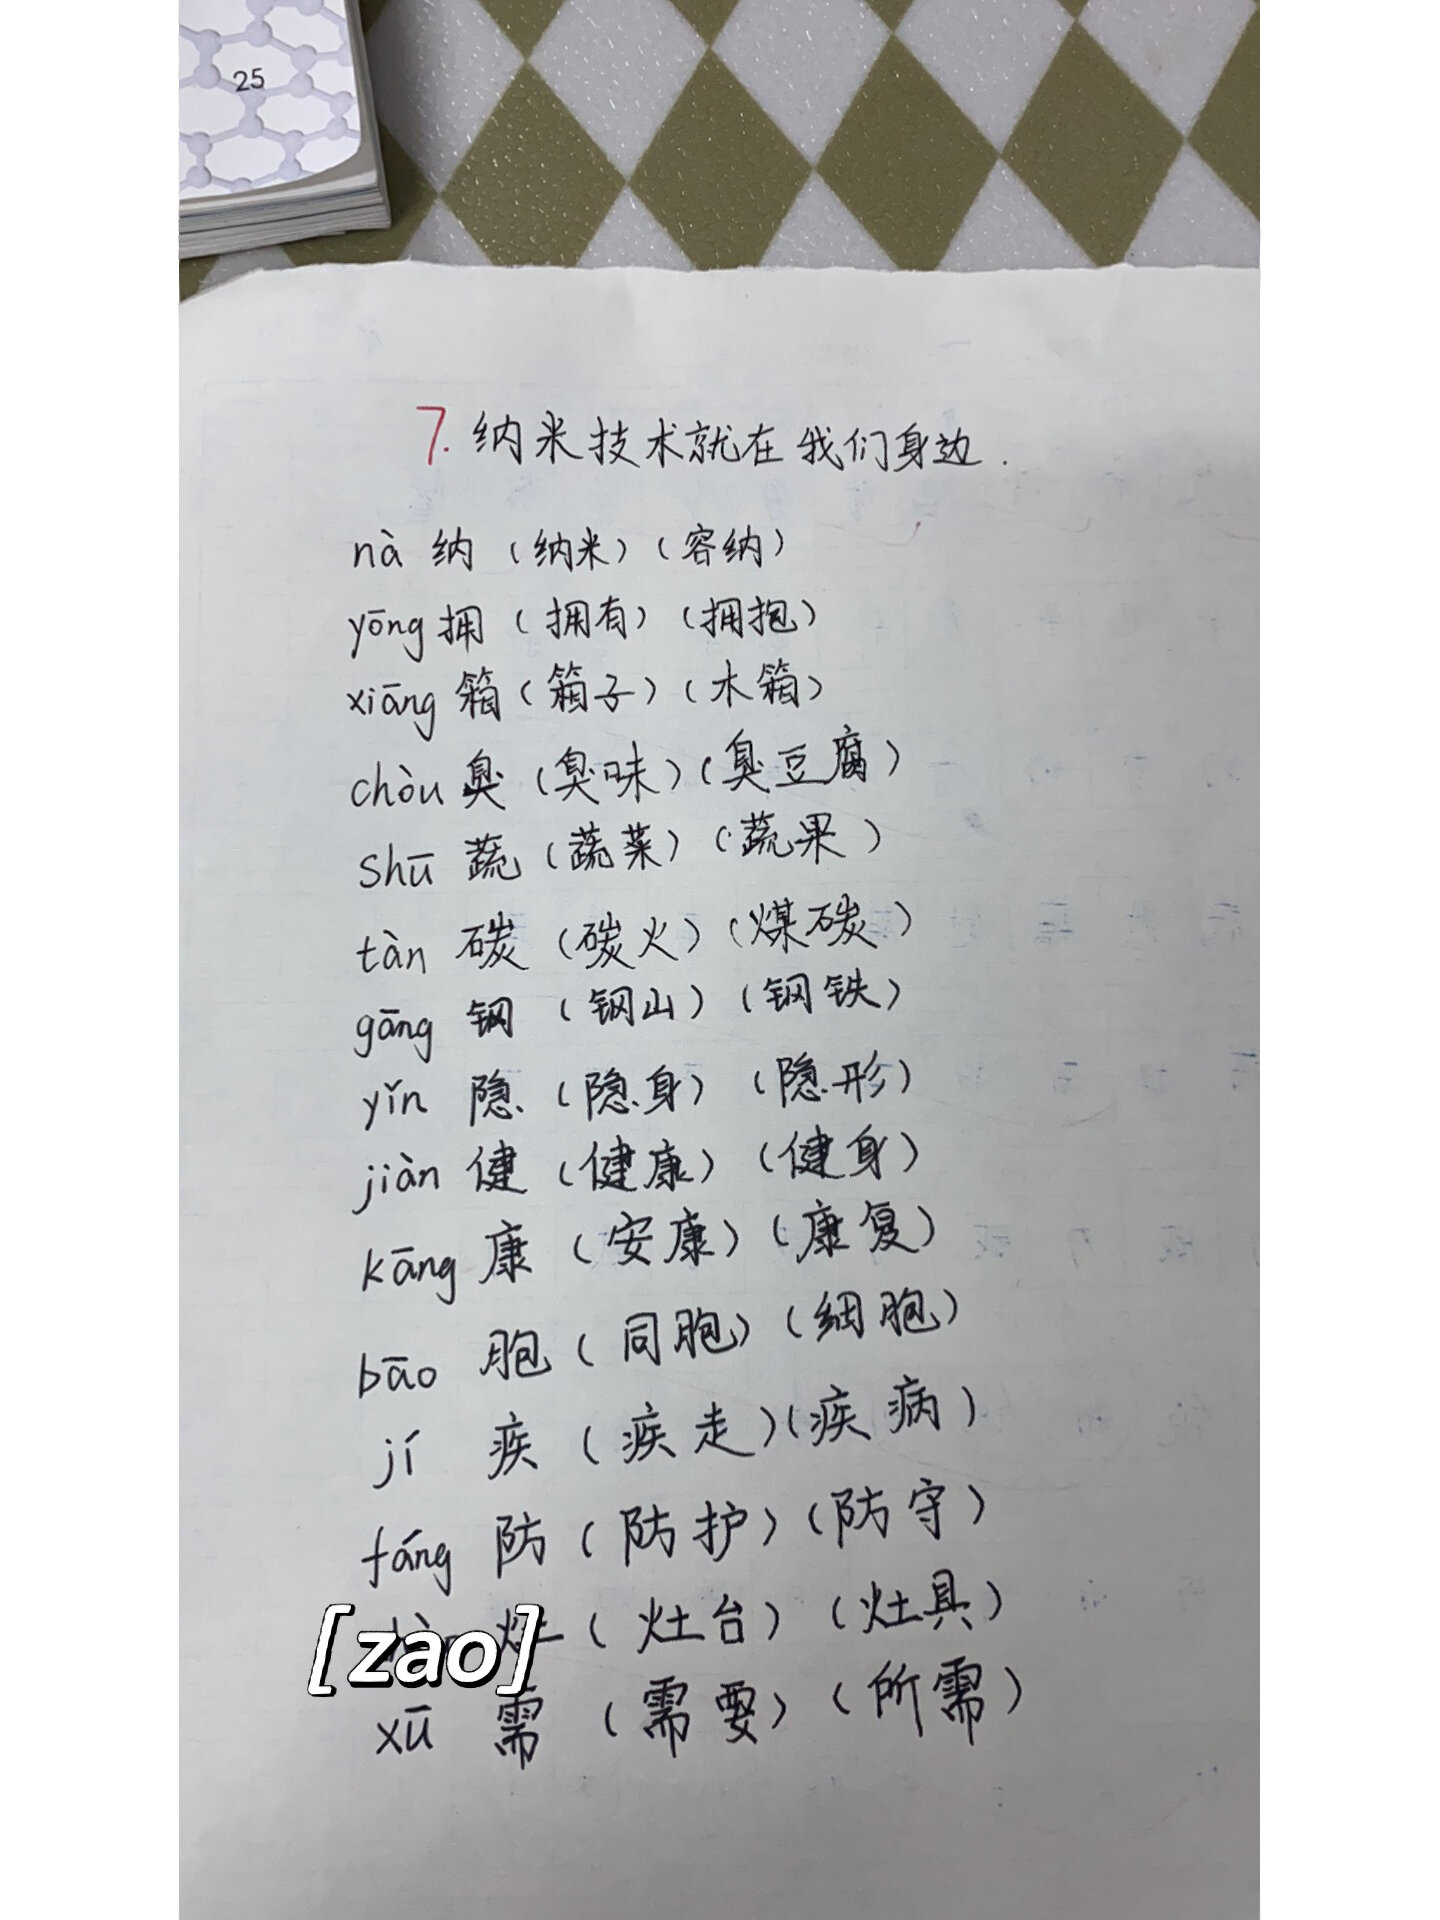 25
7. 纳米技术就在我们身边.
nà 纳 (纳米) (容纳)
yōng 拥 (拥有) (拥抱)
xiāng 箱 (箱子) (木箱)
chòu 臭 (臭味) (臭豆腐)
shū 蔬 (蔬菜) (蔬果)
tàn 碳 (碳火) (煤碳)
gāng 钢 (钢山) (钢铁)
yǐn 隐 (隐身) (隐形)
jiàn 健 (健康) (健身)
kāng 康 (安康) (康复)
bāo 胞 (同胞) (细胞)
jí 疾 (疾走) (疾病)
fáng 防 (防护) (防守)
[zao] (灶台) (灶具)
xū 需 (需要) (所需)